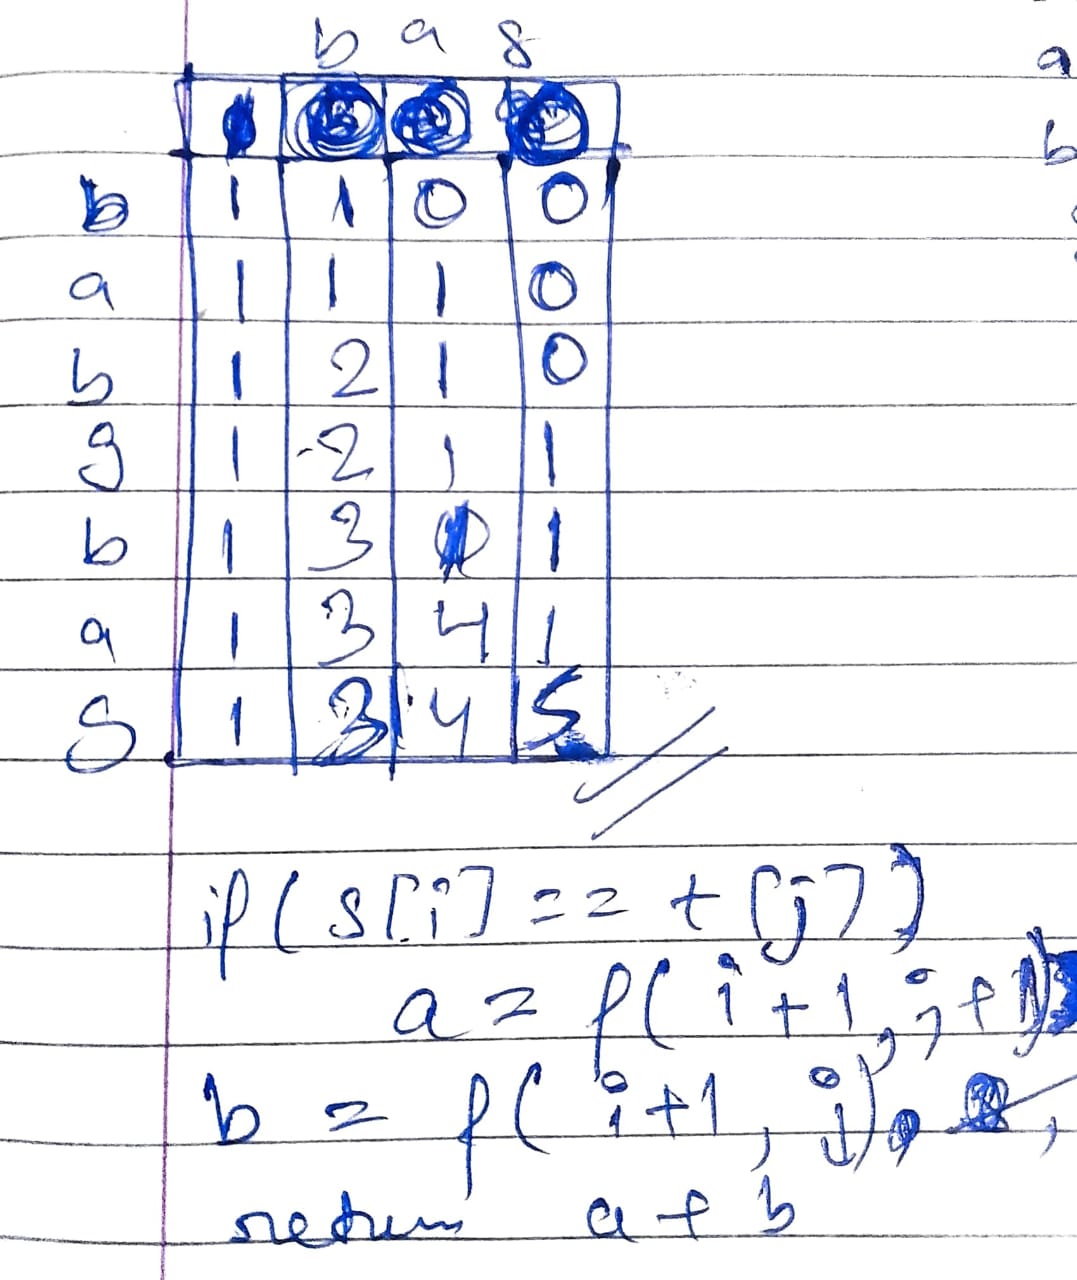 b a g
b 1 1 0 0
a 1 1 1 0
b 1 2 1 0
g 1 2 1 1
b 1 3 1 1
a 1 3 4 1
g 1 3 4 5
if(s[i] == t[j])
a = f(i+1, j+1)
b = f(i+1, j),
return a + b
a
b